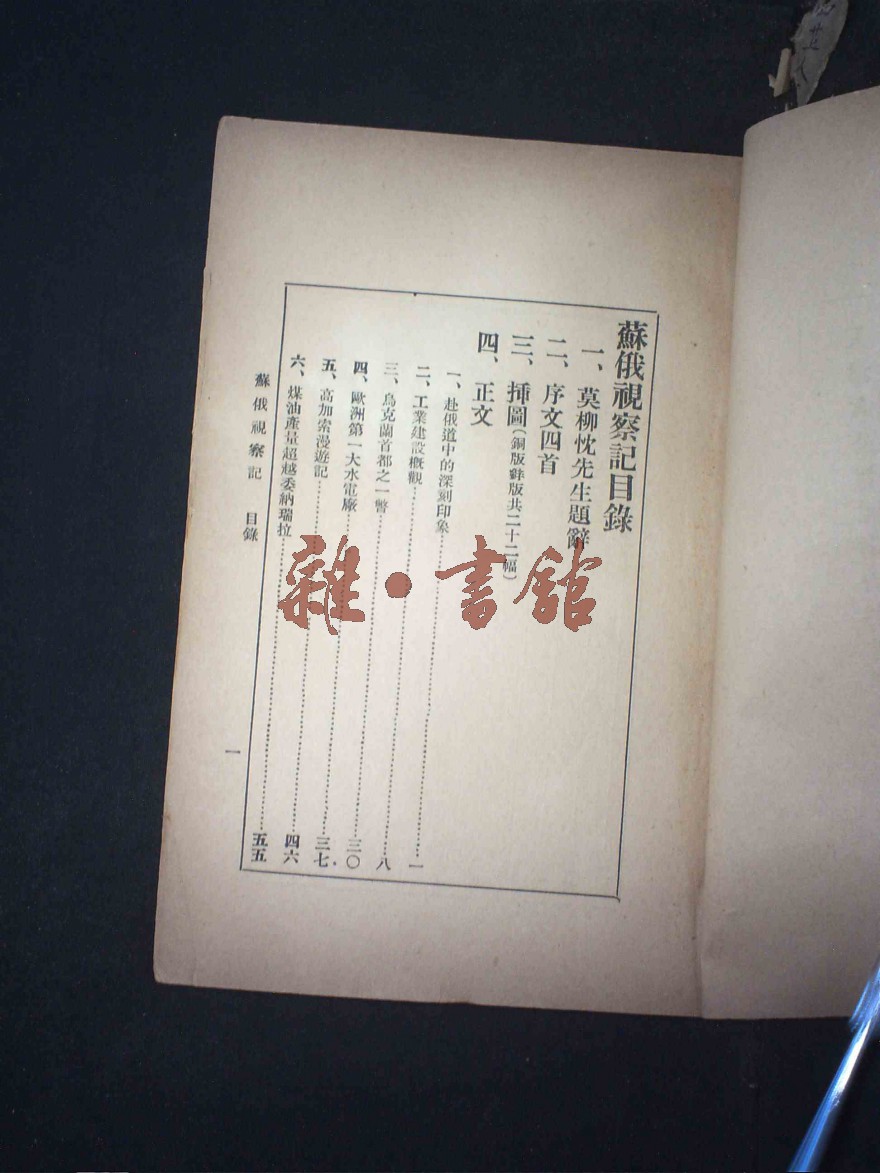 蘇俄視察記目錄
一、莫柳忱先生題辭
二、序文四首
三、揷圖(銅版鋅版共二十二幅)
四、正文
一、赴俄道中的深刻印象……一
二、工業建設槪觀……八
三、烏克蘭首都之一瞥……三〇
四、歐洲第一大水電廠……三七
五、高加索漫遊記……四六
六、煤油產量超越委納瑞拉……五五
蘇俄視察記 目錄
一
雜·書館